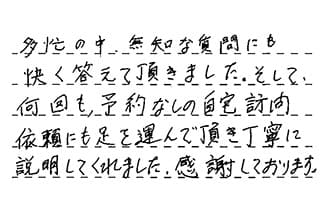 多忙の中、無知な質問にも
快く答えて頂きました。そして、
何回も、予約なしの自宅訪問
依頼にも足を運んで頂き丁寧に
説明してくれました。感謝しております。